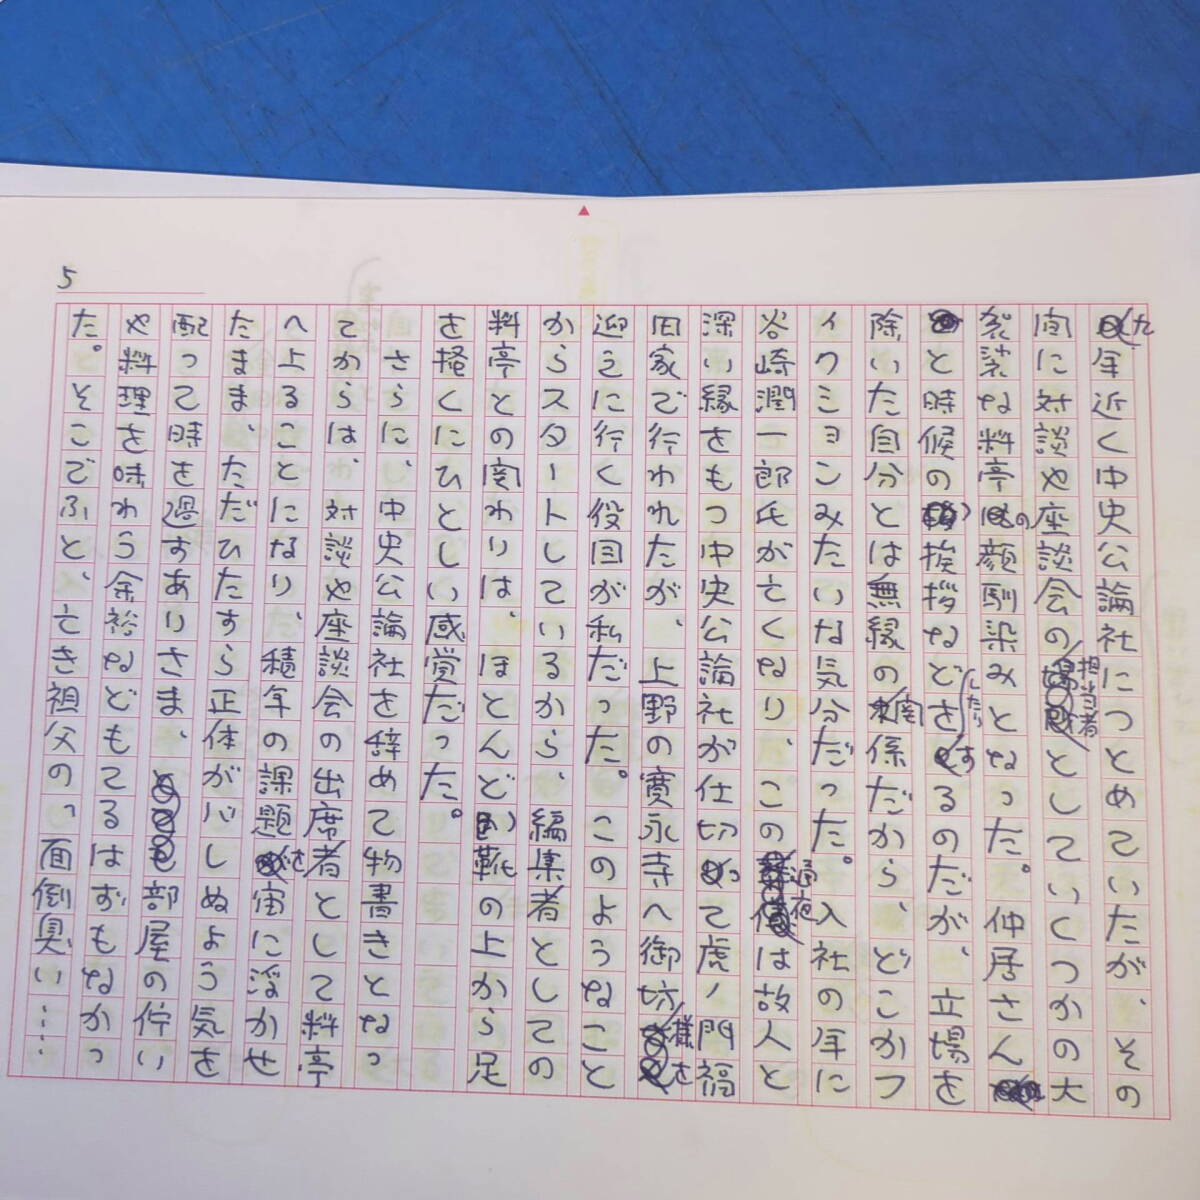 5
九年近く中央公論社につとめていたが、その
間に対談や座談会の担当者としていくつかの大
袈裟な料亭の顔馴染みとなった。仲居さん
と時候の挨拶などさしたりするのだが、立場を
除いた自分とは無縁の関係だから、どこかフ
ィクションみたいな気分だった。入社の年に
谷崎潤一郎氏が亡くなり、この通夜は故人と
深い縁をもつ中央公論社が仕切って虎ノ門福
田家で行われたが、上野の寛永寺へ御坊様を
迎えに行く役目が私だった。このようなこと
からスタートしているから、編集者としての
料亭との関わりは、ほとんど靴の上から足
を掻くにひとしい感覚だった。
さらに、中央公論社を辞めて物書きとなっ
てからは、対談や座談会の出席者として料亭
へ上ることになり、積年の課題を宙に浮かせ
たまま、ただひたすら正体がバレぬよう気を
配って時を過すありさま、部屋の佇い
や料理を味わう余裕などもてるはずもなかっ
た。そこでふと、亡き祖父の、面倒臭い……